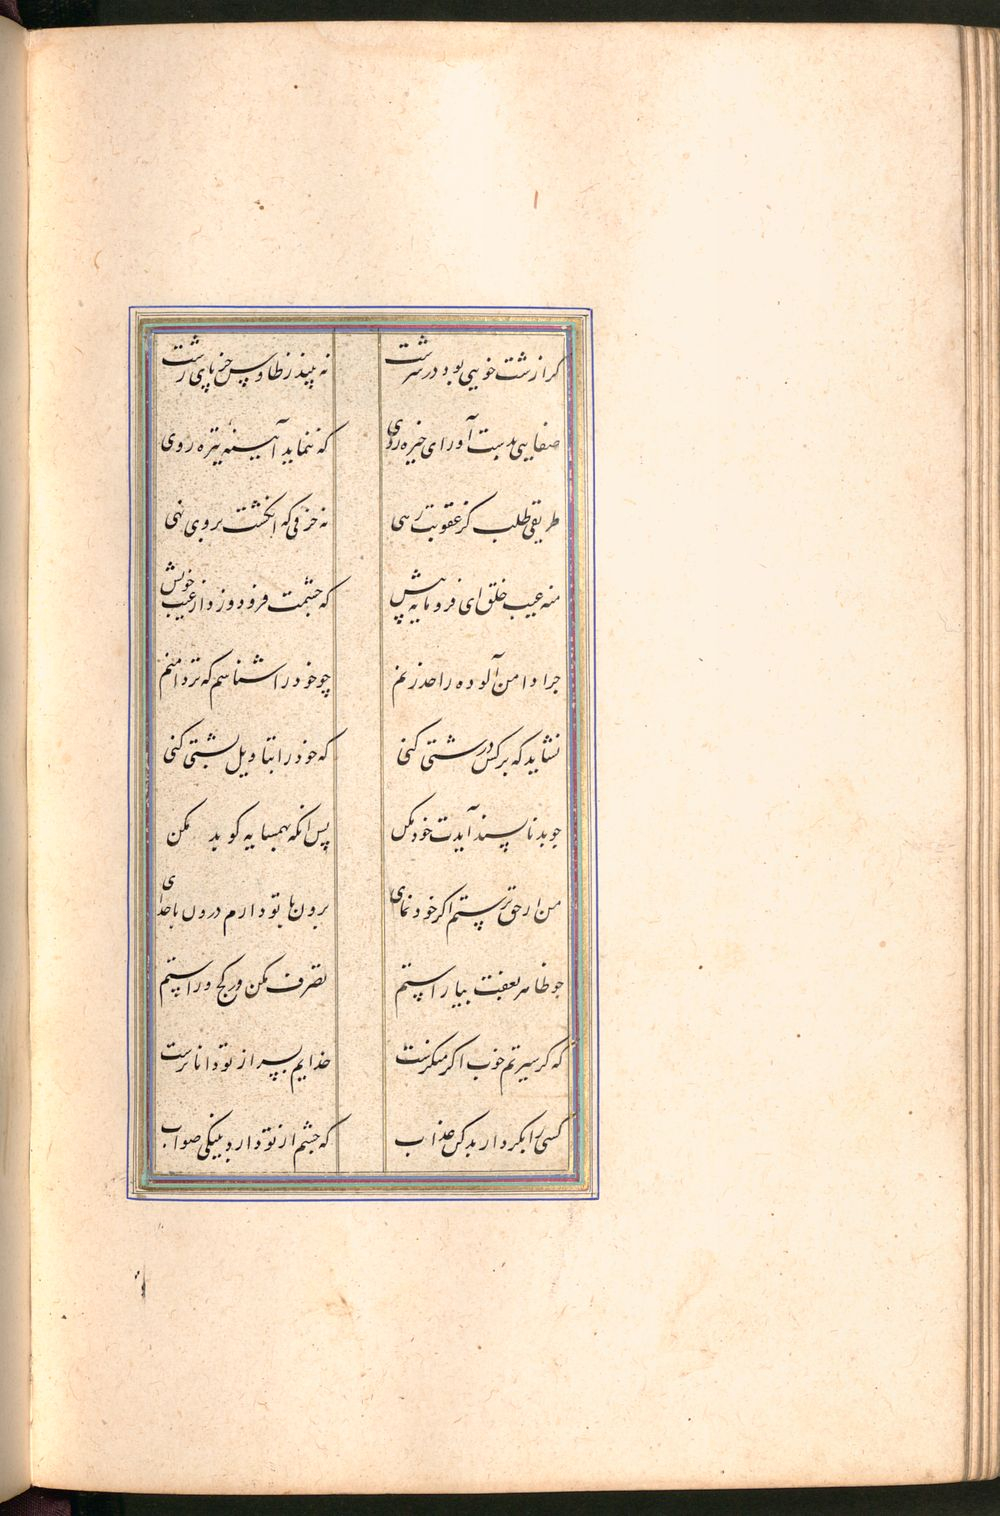 کرا زشت خویی بود در سرشت نه بیند ز طاوس جز پای زشت
صفایی بدست آور ای خیره روی که ننماید آیینه تیره روی
طریقی طلب کز عقوبت رهی نه حرفی که انکشت بروی نهی
منه عیب خلق ای فرومایه پیش که چشمت فرو دوزد از عیب خویش
چرا دامن آلوده را حد زنم چو خود را شناسم که تردامنم
نشاید که بر کس درشتی کنی که خود را بتاویل پشتی کنی
چو بد ناپسند آیدت خود مکن پس انکه بهمسایه کو بد مکن
من ار حق پرستم اکر خود نمای برون با تو دارم درون با خدای
چو ظاهر بعفت بیاراستم تصرف مکن در کج و راستم
که کر سیرتم خوب اکر منکرست خدایم بسر از تو داناترست
کسی را بکردار بد کن عذاب که چشم از تو دارد بنیکی صواب